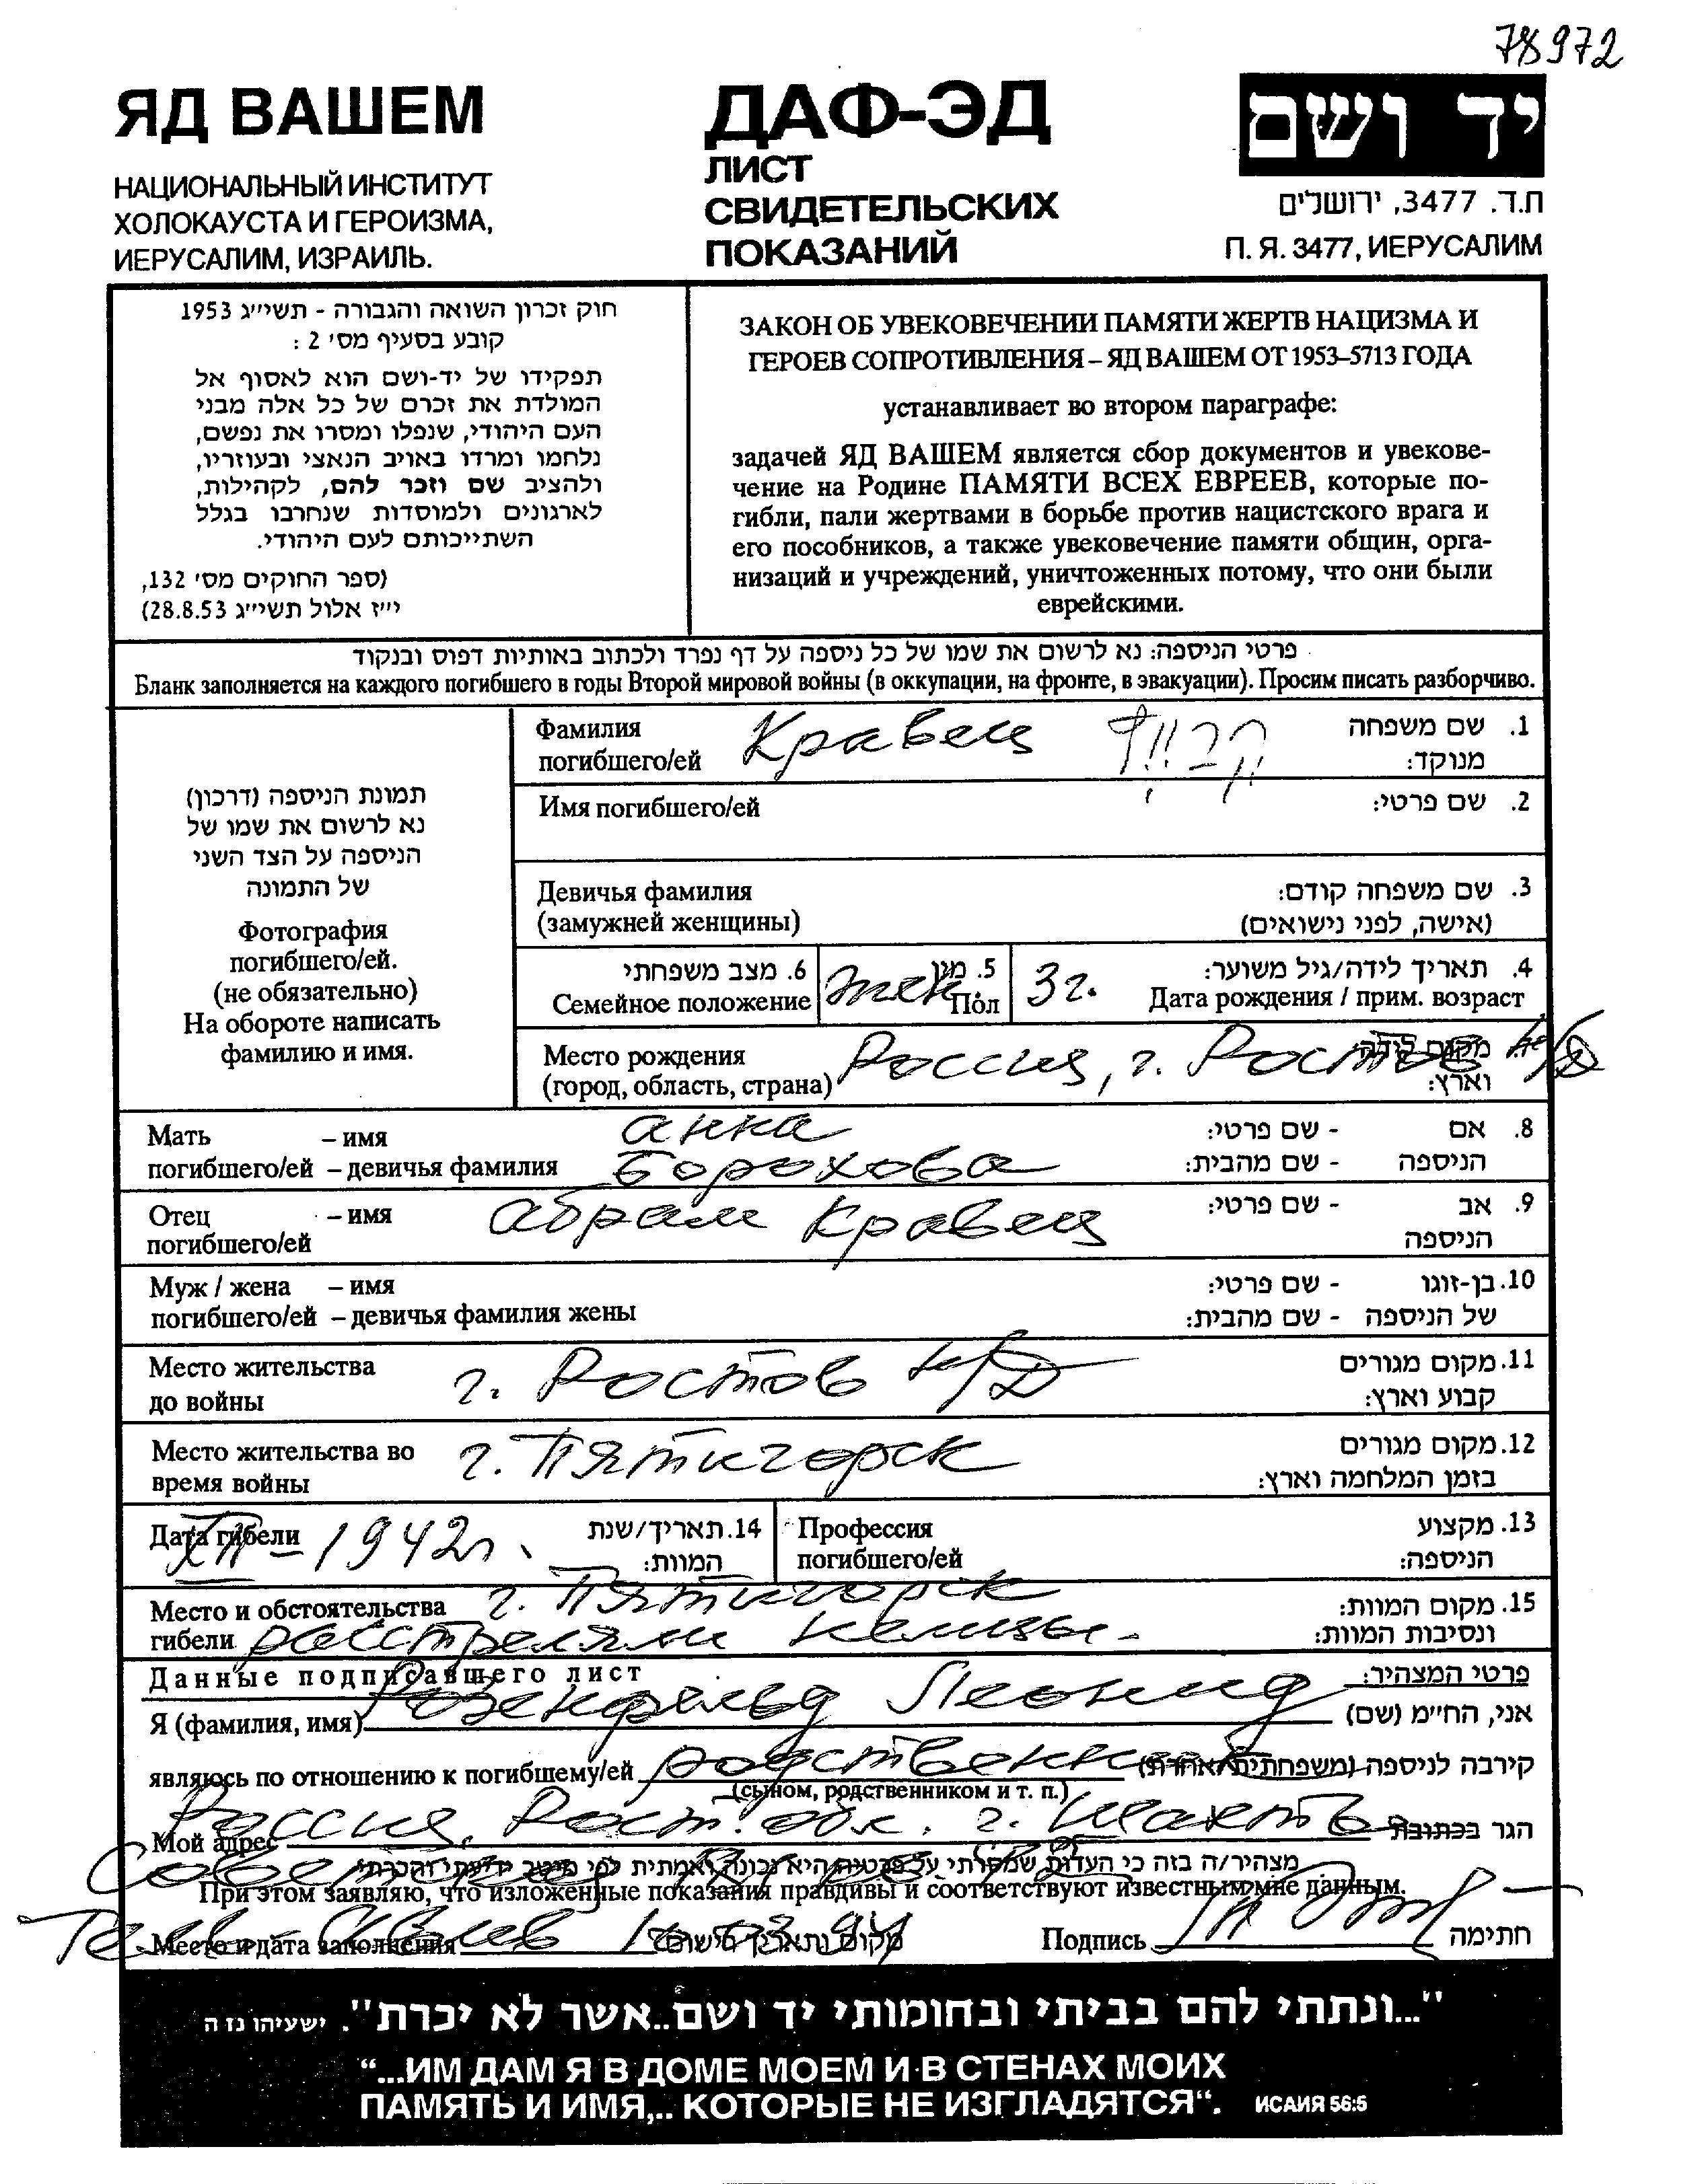 78972
ЯД ВАШЕМ
НАЦИОНАЛЬНЫЙ ИНСТИТУТ
ХОЛОКАУСТА И ГЕРОИЗМА,
ИЕРУСАЛИМ, ИЗРАИЛЬ.
ДАФ-ЭД
ЛИСТ
СВИДЕТЕЛЬСКИХ
ПОКАЗАНИЙ
יד ושם
ת.ד. 3477, ירושלים
П. Я. 3477, ИЕРУСАЛИМ
חוק זכרון השואה והגבורה - תשי״ג 1953
קובע בסעיף מס׳ 2 :
תפקידו של יד-ושם הוא לאסוף אל
המולדת את זכרם של כל אלה מבני
העם היהודי, שנפלו ומסרו את נפשם,
נלחמו ומרדו באויב הנאצי ובעוזריו,
ולהציב שם וזכר להם, לקהילות,
לארגונים ולמוסדות שנחרבו בגלל
השתייכותם לעם היהודי.
(ספר החוקים מס׳ 132,
י״ז אלול תשי״ג 28.8.53)
ЗАКОН ОБ УВЕКОВЕЧЕНИИ ПАМЯТИ ЖЕРТВ НАЦИЗМА И
ГЕРОЕВ СОПРОТИВЛЕНИЯ – ЯД ВАШЕМ ОТ 1953–5713 ГОДА
устанавливает во втором параграфе:
задачей ЯД ВАШЕМ является сбор документов и увекове-
чение на Родине ПАМЯТИ ВСЕХ ЕВРЕЕВ, которые по-
гибли, пали жертвами в борьбе против нацистского врага и
его пособников, а также увековечение памяти общин, орга-
низаций и учреждений, уничтоженных потому, что они были
еврейскими.
פרטי הניספה: נא לרשום את שמו של כל ניספה על דף נפרד ולכתוב באותיות דפוס ובנקוד
Бланк заполняется на каждого погибшего в годы Второй мировой войны (в оккупации, на фронте, в эвакуации). Просим писать разборчиво.
תמונת הניספה (דרכון)
נא לרשום את שמו של
הניספה על הצד השני
של התמונה
Фотография
погибшего/ей.
(не обязательно)
На обороте написать
фамилию и имя.
Фамилия
погибшего/ей Кравец
1. שם משפחה
מנוקד:
Имя погибшего/ей
2. שם פרטי:
Девичья фамилия
(замужней женщины)
3. שם משפחה קודם:
(אישה, לפני נישואים)
6. מצב משפחתי
Семейное положение
5. מין
жен. Пол
3 г.
4. תאריך לידה/גיל משוער:
Дата рождения / прим. возраст
Место рождения
(город, область, страна) Россия, г. Ростов н/Д
מקום לידה
וארץ:
Мать – имя Анна
погибшего/ей – девичья фамилия Борохова
8. אם - שם פרטי:
הניספה - שם מהבית:
Отец – имя Абрам Кравец
погибшего/ей
9. אב - שם פרטי:
הניספה
Муж / жена – имя
погибшего/ей – девичья фамилия жены
10. בן-זוגו - שם פרטי:
של הניספה - שם מהבית:
Место жительства
до войны г. Ростов н/Д
11. מקום מגורים
קבוע וארץ:
Место жительства во
время войны г. Пятигорск
12. מקום מגורים
בזמן המלחמה וארץ:
Дата гибели XII – 1942 г.
14. תאריך/שנת
המוות:
Профессия
погибшего/ей
13. מקצוע
הניספה:
Место и обстоятельства г. Пятигорск
гибели расстреляли немцы.
15. מקום המוות:
ונסיבות המוות:
Данные подписавшего лист
פרטי המצהיר:
Я (фамилия, имя) Розенфельд Леонид
אני, הח״מ (שם)
являюсь по отношению к погибшему/ей родственник
קירבה לניספה (משפחתית/אחרת)
(сыном, родственником и т. п.)
Мой адрес Россия, Рост. обл. г. Шахты
הגר בכתובת
Советская
מצהיר/ה בזה כי העדות שמסרתי על פרטיה היא נכונה ואמתית לפי מיטב ידיעתי והכרתי.
При этом заявляю, что изложенные показания правдивы и соответствуют известным мне данным.
Тель-Авив
Место и дата заполнения
מקום ותאריך הישום
Подпись
חתימה
"...ונתתי להם בביתי ובחומותי יד ושם..אשר לא יכרת". ישעיהו נז ה
“...ИМ ДАМ Я В ДОМЕ МОЕМ И В СТЕНАХ МОИХ
ПАМЯТЬ И ИМЯ,.. КОТОРЫЕ НЕ ИЗГЛАДЯТСЯ“. ИСАИЯ 56:5